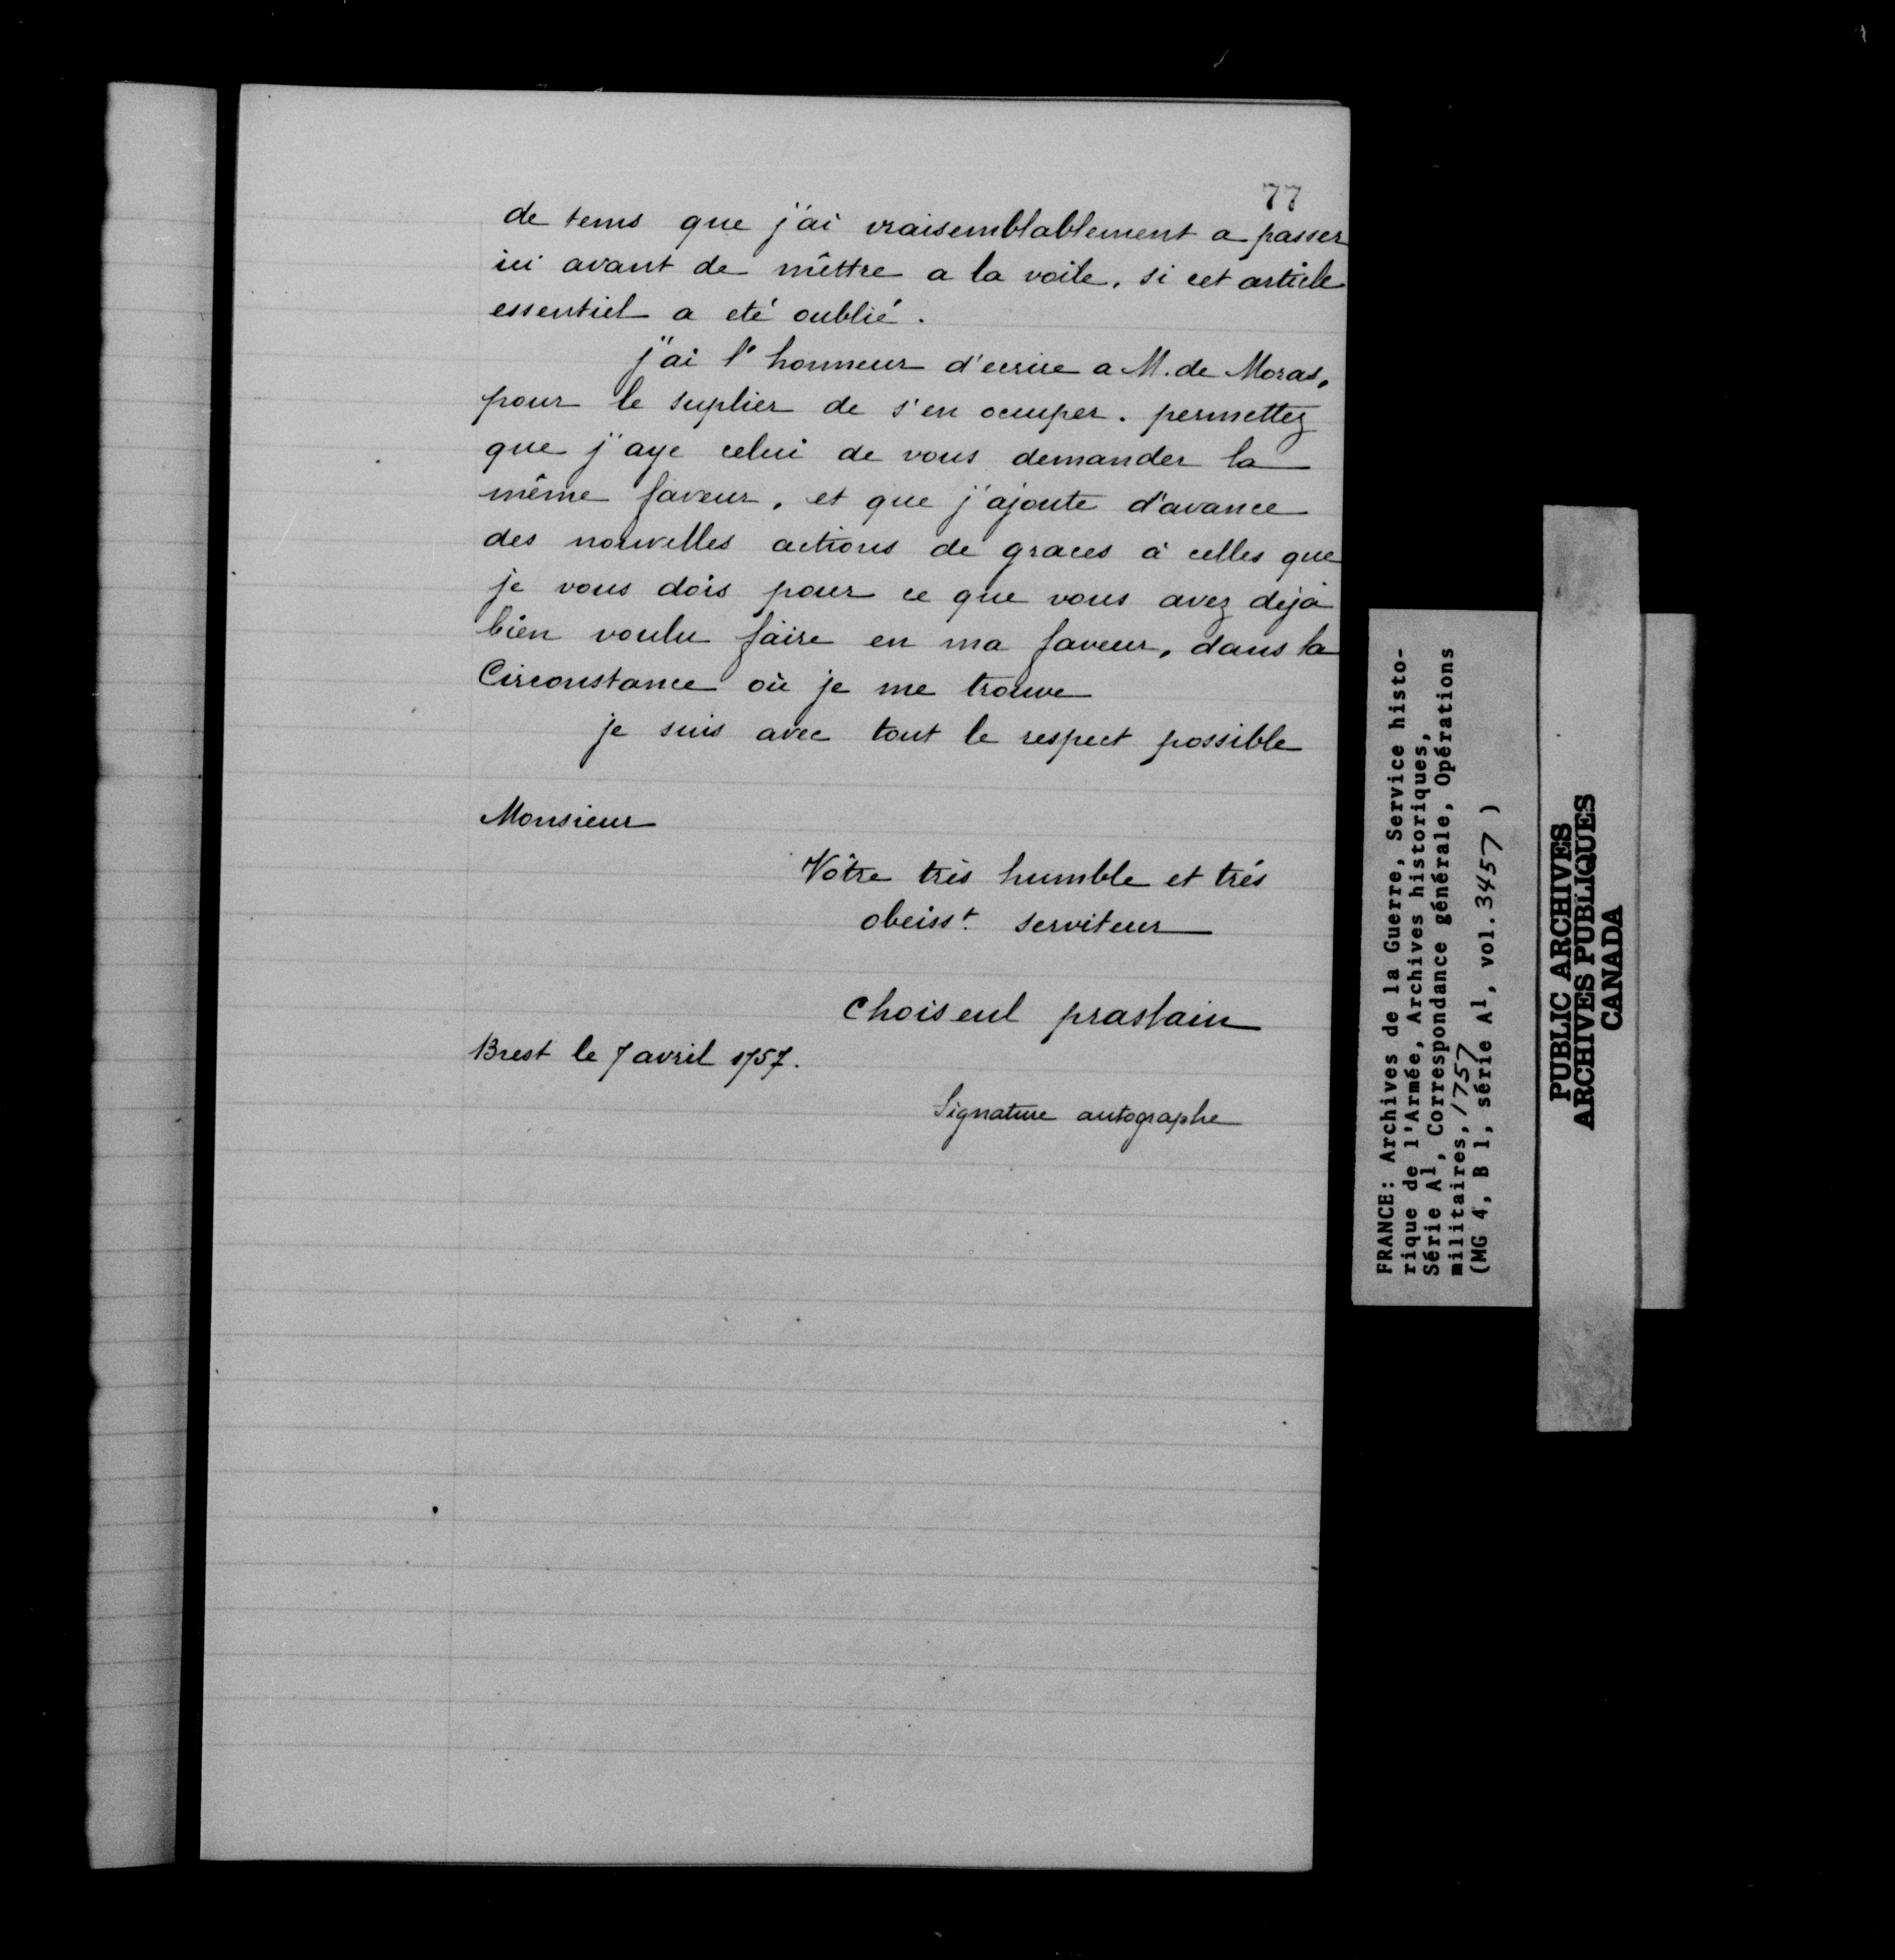 77
de tems que j'ai vraisemblablement a passer
ici avant de mêttre a la voile, si cet article
essentiel a eté oublié.
j'ai l'honneur d'ecrire a M. de Moras,
pour le suplier de s'en ocuper. permettez
que j'aye celui de vous demander la
même faveur, et que j'ajoute d'avance
des nouvelles actions de graces à celles que
je vous dois pour ce que vous avez dejà
bien voulu faire en ma faveur, dans la
Circonstance où je me trouve
je suis avec tout le respect possible
Monsieur
Vôtre très humble et trés
obeisst. serviteur
Choiseul praslain
Brest le 7 avril 1757.
Signature autographe
FRANCE: Archives de la Guerre, Service histo-
rique de l'Armée, Archives historiques,
Série A1, Correspondance générale, Opérations
militaires, 1757
(MG 4, B 1, série A1, vol. 3457 )
PUBLIC ARCHIVES
ARCHIVES PUBLIQUES
CANADA